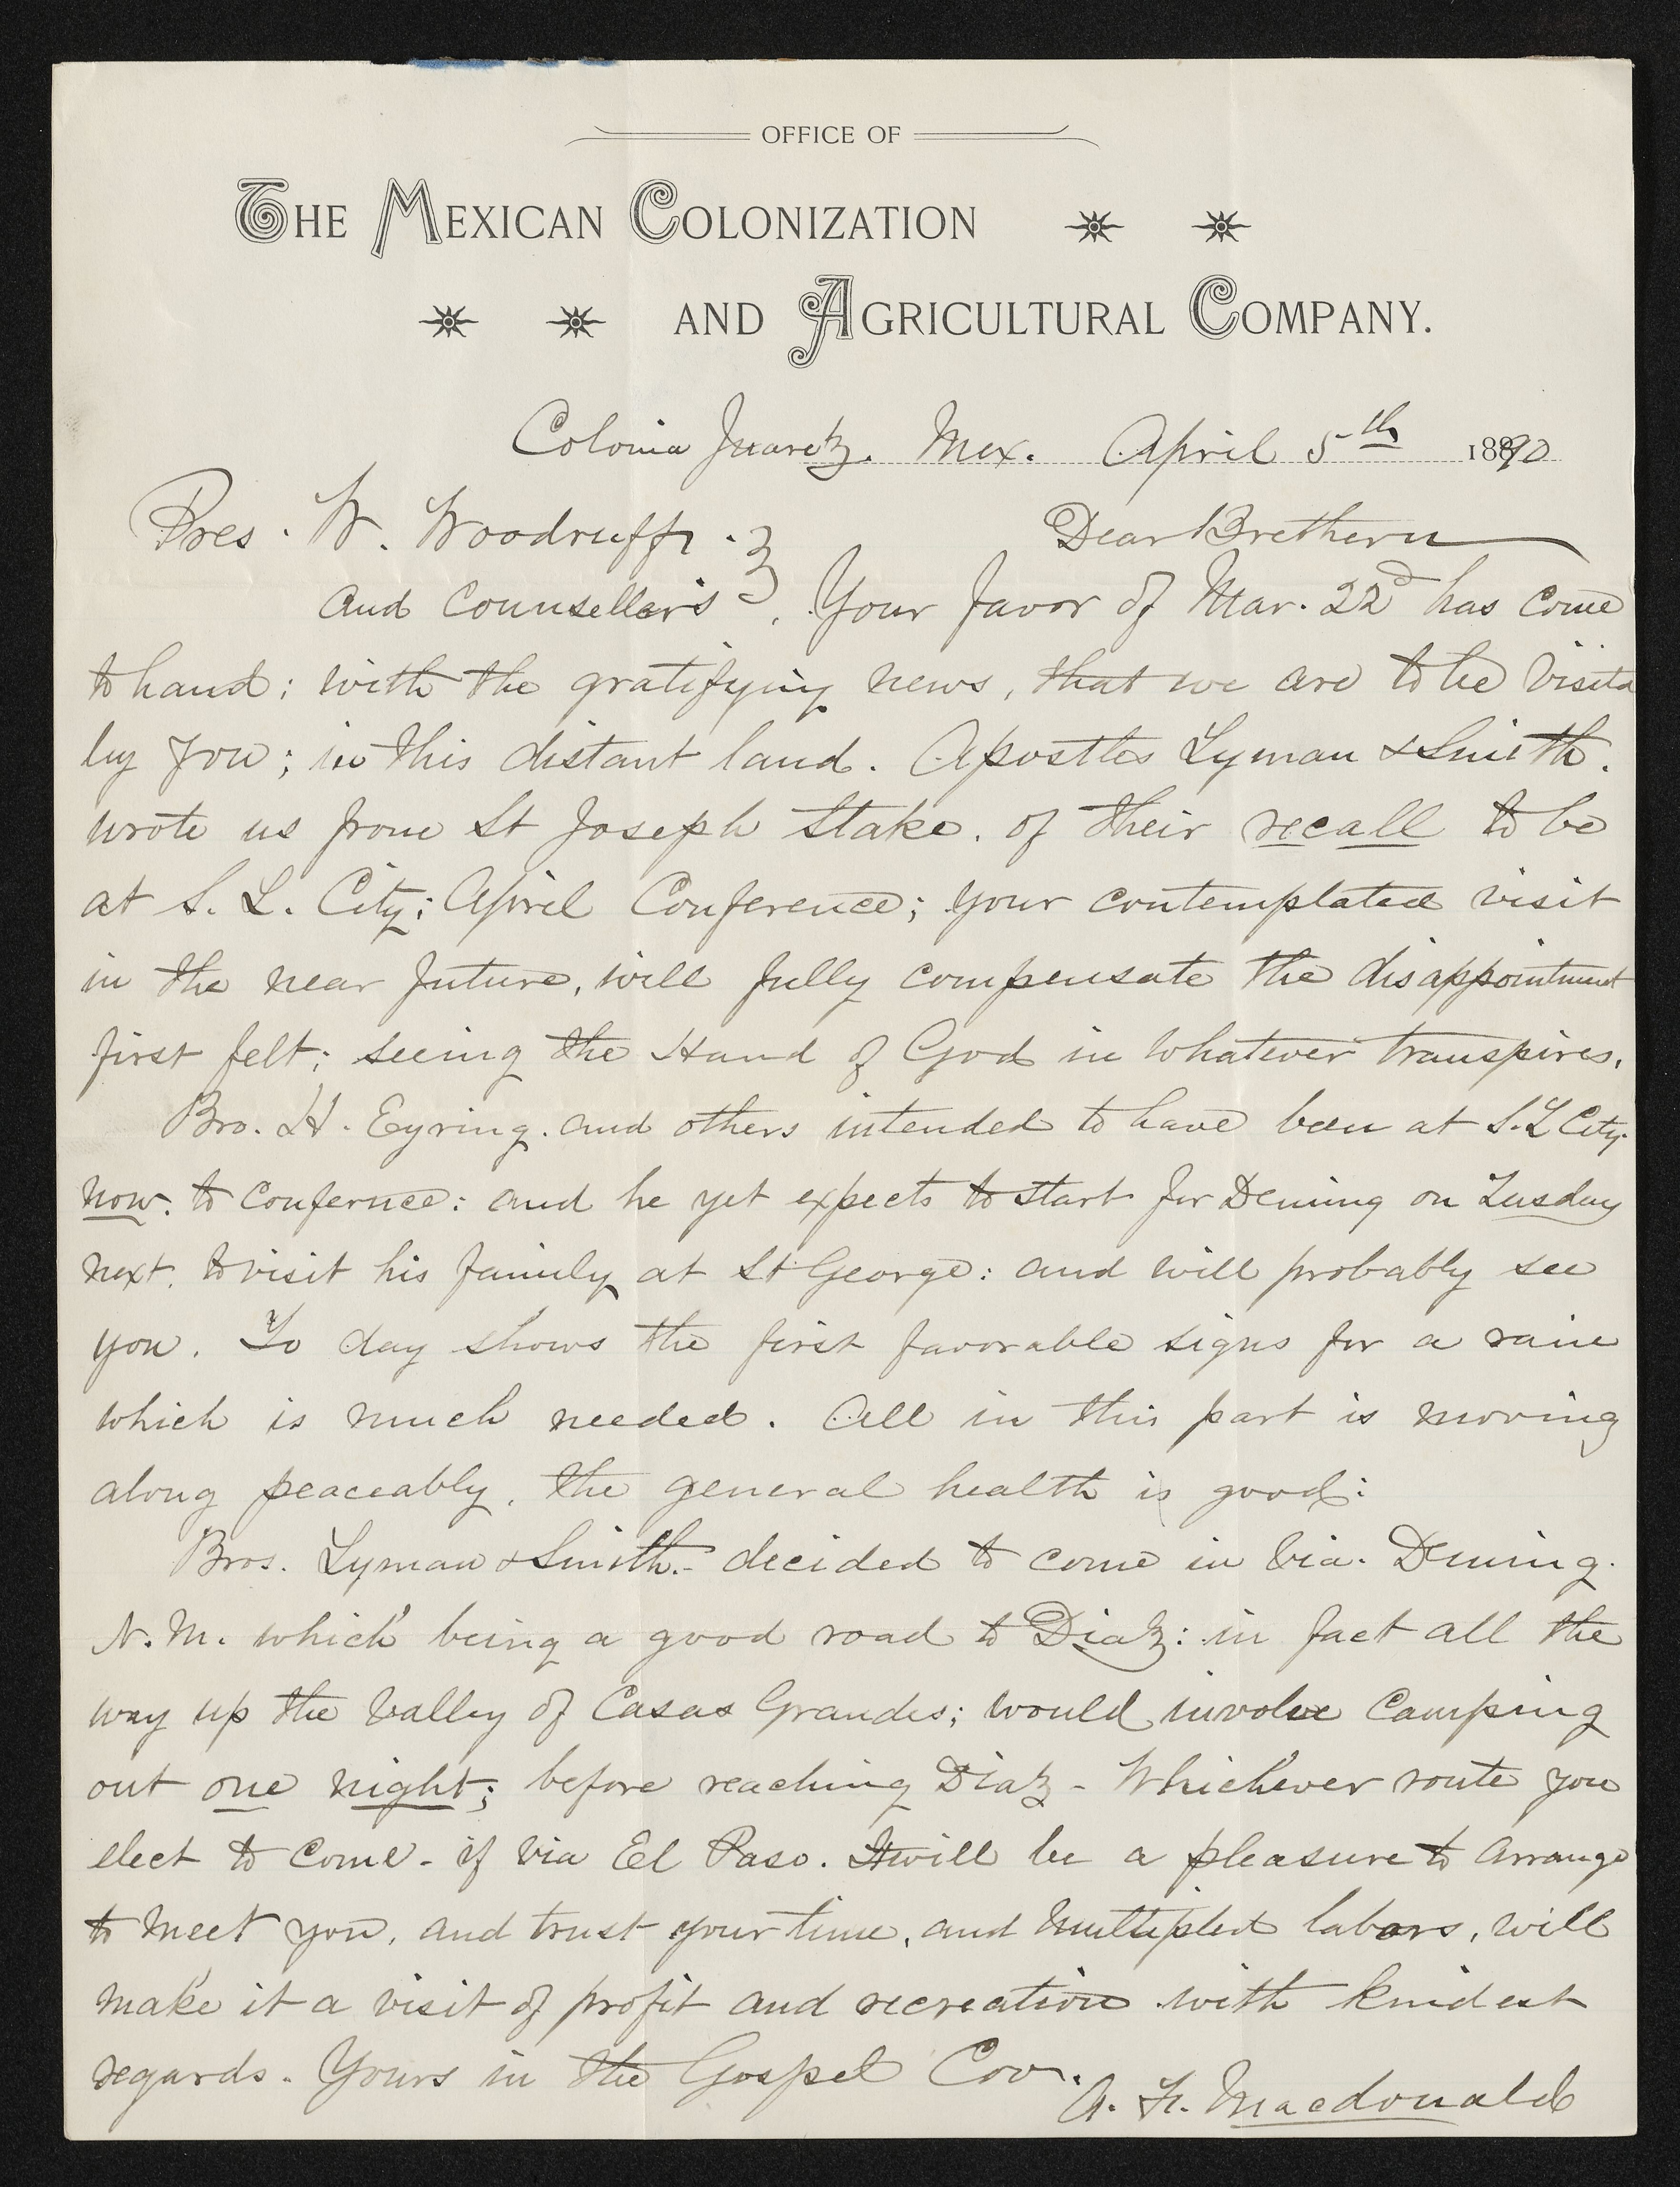 OFFICE OF
THE MEXICAN COLONIZATION
AND AGRICULTURAL COMPANY.
Colonia Juaretz. Mex. April 5th 1890
Pres. W. Woodruff. Dear Brethern
and Counsellors. Your favor of Mar. 22d has come
to hand; with the gratifying news, that we are to be visited
by you; in this distant land. Apostles Lyman & Smith.
wrote us from St Joseph Stake. of their recall to be
at S. L. City; April Conference; your contemplated visit
in the near future, will fully compensate the disappointment
first felt; seeing the Hand of God in whatever transpires.
Bro. H. Eyring. and others intended to have been at S. L City
now. to Confernce: and he yet expects to start for Deming on Tusday
next. to visit his family at St George: and will probably see
you. To day shows the first favorable signs for a rain
which is much needed. All in this part is moving
along peaceably, the general health is good:
Bros. Lyman & Smith.- decided to come in via. Deming.
N. M. which being a good road to Diaz: in fact all the
way up the valley of Casas Grandes; would involve Camping
out one night; before reaching Diaz - Whichever route you
elect to come - if via El Paso. It will be a pleasure to arrange
to meet you, and trust your time, and multiplied labors, will
make it a visit of profit and recreation with kindest
regards. Yours in the Gospel Cov.
A. F. Macdonald